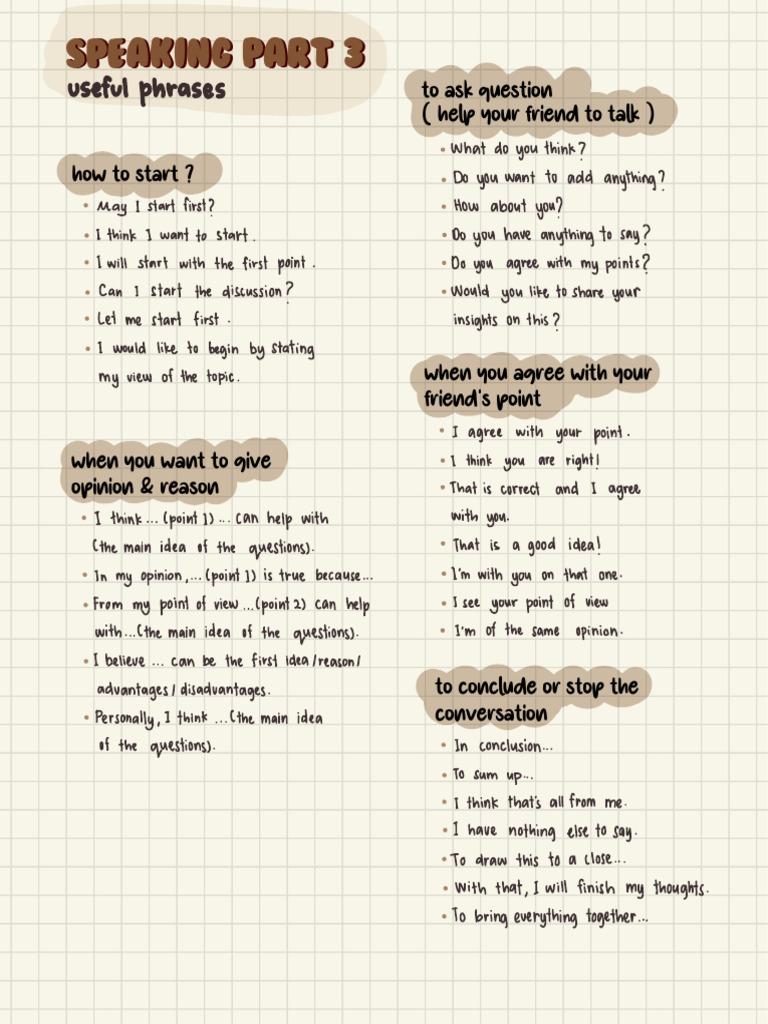 SPEAKING PART 3
useful phrases
how to start ?
• May I start first?
• I think I want to start.
• I will start with the first point.
• Can I start the discussion?
• Let me start first.
• I would like to begin by stating
my view of the topic.
when you want to give
opinion & reason
• I think... (point 1)... can help with
(the main idea of the questions).
• In my opinion,...(point 1) is true because...
• From my point of view ...(point 2) can help
with...(the main idea of the questions).
• I believe ... can be the first idea/reason/
advantages/disadvantages.
• Personally, I think ...(the main idea
of the questions).
to ask question
( help your friend to talk )
• What do you think?
• Do you want to add anything?
• How about you?
• Do you have anything to say?
• Do you agree with my points?
• Would you like to share your
insights on this?
when you agree with your
friend's point
• I agree with your point.
• I think you are right!
• That is correct and I agree
with you.
• That is a good idea!
• I'm with you on that one.
• I see your point of view
• I'm of the same opinion.
to conclude or stop the
conversation
• In conclusion...
• To sum up...
• I think that's all from me.
• I have nothing else to say.
• To draw this to a close...
• With that, I will finish my thoughts.
• To bring everything together...